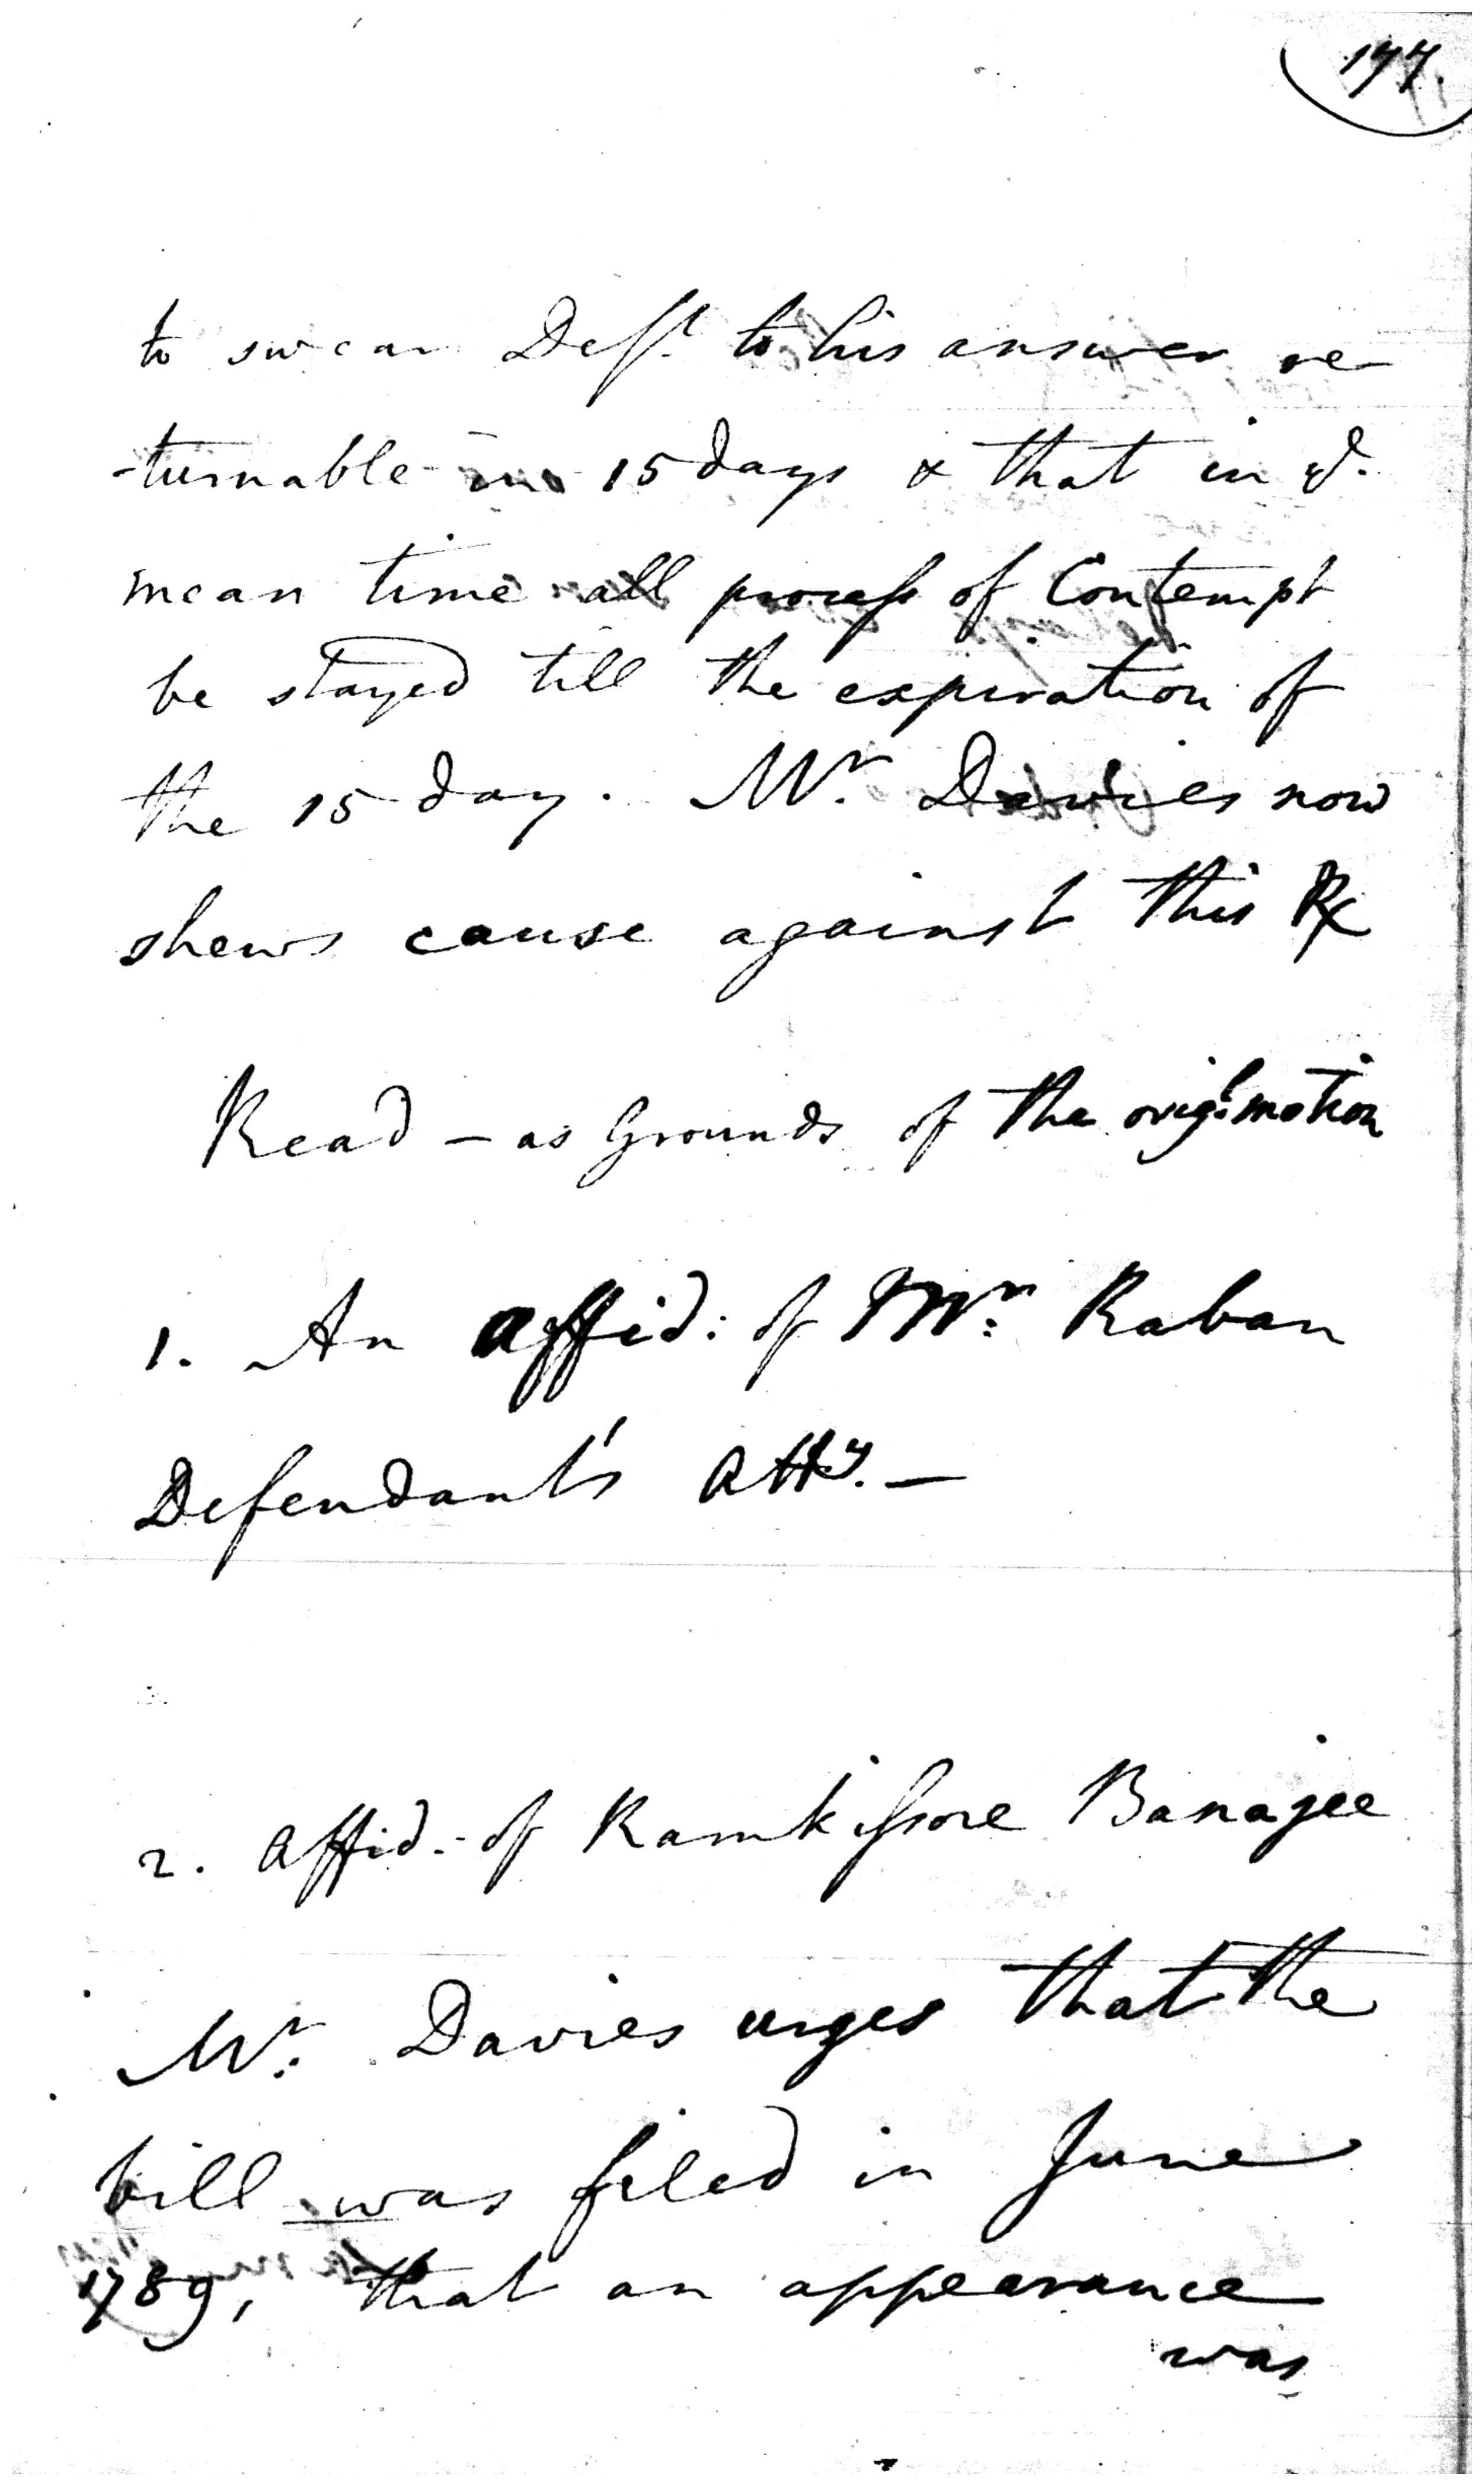 177.
to swear Deft. to his answer re-
-turnable in 15 days & that in ye.
mean time all process of Contempt
be stayed till the expiration of
the 15 day. Mr. Davies now
shews cause against this R
Read - as Grounds of the orig.l motion
1. An Affid: of Mr. Raban
Defendant's Atty. -
2. Affid: of Ramkissore Banajee
Mr. Davies urges that the
bill was filed in June
1789, that an appearance
was